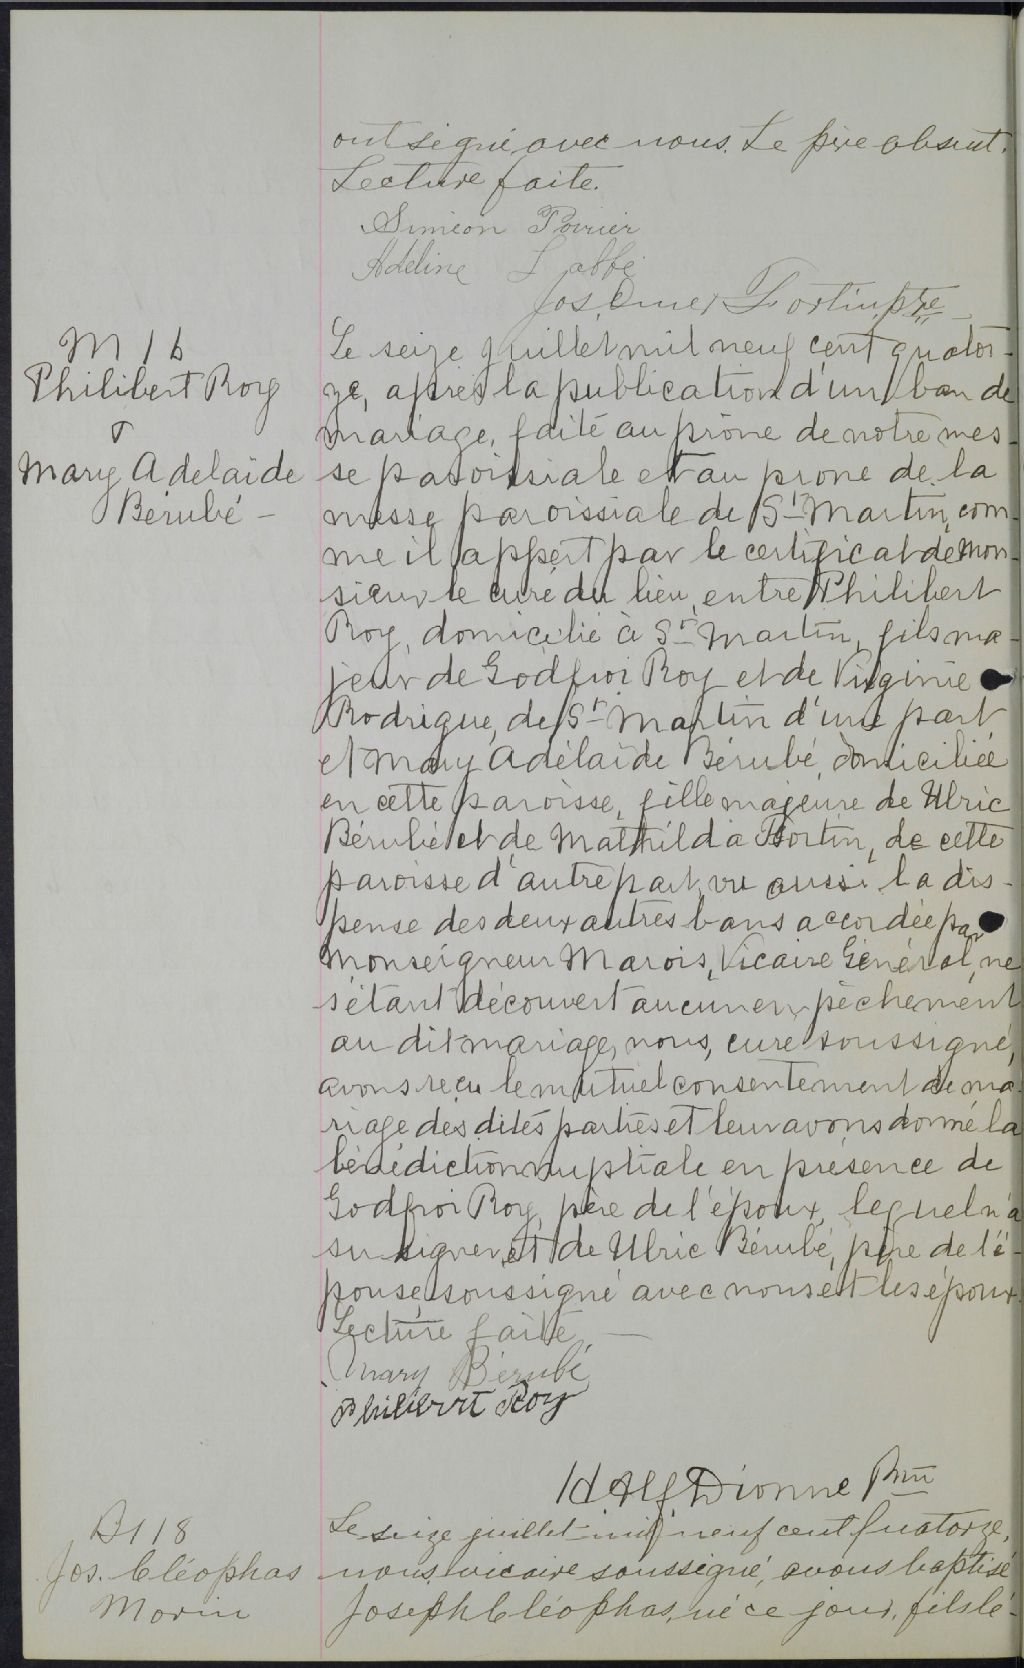 ont signé avec nous. Le père absent.
Lecture faite.
Siméon Poirier
Adeline Labbé
Jos. Omer Fortin, ptre
M 16
Philibert Roy
&
Mary Adelaide
Bérubé -
Le seize juillet mil neuf cent quator-
ze, après la publication d'un ban de
mariage, faite au prône de notre mes-
se paroissiale et au prone de la
messe paroissiale de St Martin, com-
me il appert par le certificat de Mon-
sieur le curé du lieu, entre Philibert
Roy, domicilié à St Martin, fils ma-
jeur de Godfroi Roy et de Virginie
Rodrigue, de St Martin d'une part
et Mary Adélaïde Bérubé, domiciliée
en cette paroisse, fille majeure de Ulric
Bérubé et de Mathilda Fortin, de cette
paroisse d'autre part, vu aussi la dis-
pense des deux autres bans accordée par
Monseigneur Marois, Vicaire Général, ne
s'étant découvert aucun empêchement
au dit mariage, nous, curé soussigné,
avons reçu le mutuel consentement de ma-
riage des dites parties et leur avons donné la
bénédiction nuptiale en présence de
Godfroi Roy, père de l'époux, lequel n'a
su signer, et de Ulric Bérubé, père de l'é-
pouse, soussigné avec nous et les époux.
Lecture faite —
Mary Bérubé
Philibert Roy
H Alf Dionne Ptre
B 118
Jos. Cléophas
Morin
Le seize juillet mil neuf cent quatorze,
nous vicaire soussigné, avons baptisé
Joseph Cléophas, né ce jour, fils lé-